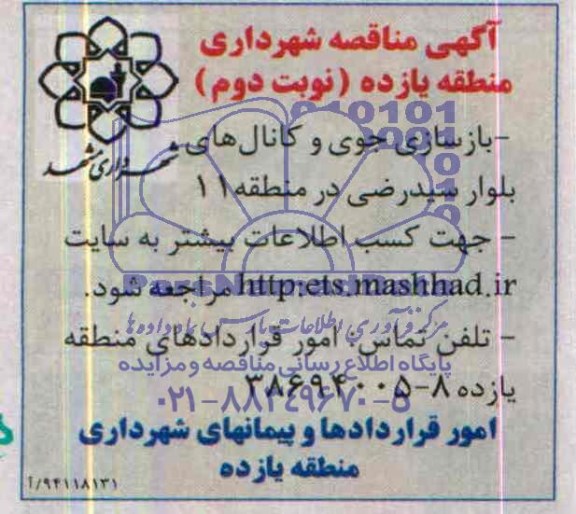 آگهی مناقصه شهرداری
منطقه یازده (نوبت دوم)
شهرداری مشهد
-بازسازی جوی و کانال‌های
بلوار سیدرضی در منطقه ۱۱
- جهت کسب اطلاعات بیشتر به سایت
http:ets.mashhad.ir مراجعه شود.
- تلفن تماس: امور قراردادهای منطقه
یازده ۸-۳۸۶۹۴۰۰۵
پایگاه اطلاع رسانی مناقصه و مزایده
۰۲۱-۸۸۳۴۹۶۷۰-۵
امور قراردادها و پیمانهای شهرداری
منطقه یازده
۹۴۱۱۸۱۳۱/آ